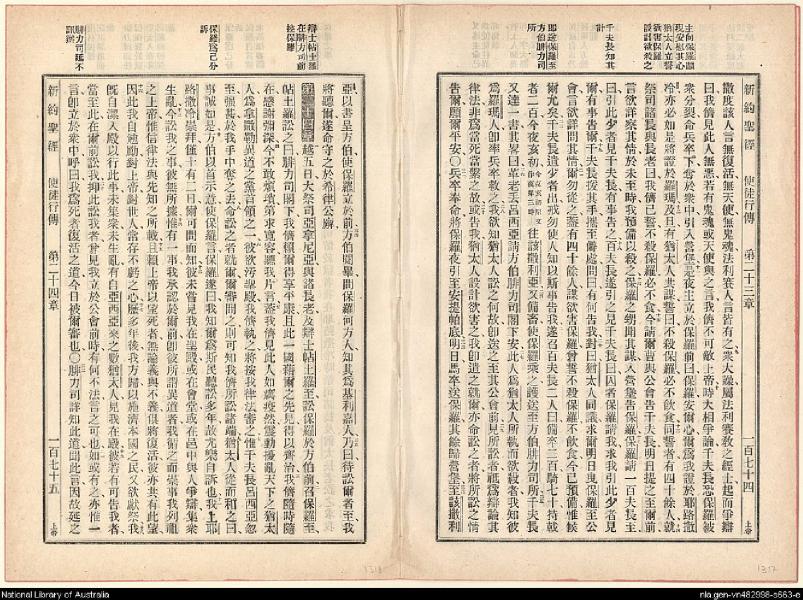 主向保羅顯
現安慰其心
猶太人立誓
欲害保羅
千夫長知其
計
即送保羅至
方伯腓力司
新約聖經 使徒行傳 第二十三章 一百七十四
撒度該人言無復活無天使無鬼魂法利賽人言皆有之衆大譟屬法利賽教之經士起而爭辯
曰我儕見此人無惡若有鬼魂或天使與之言我儕不可敵上帝時大相爭論千夫長恐保羅被
衆分裂命兵卒下奪於衆中引入營堡是夜主立於保羅前曰保羅安爾心爾爲我證於耶路撒
冷亦必如是將證於羅瑪及旦有猶太人共謀誓曰不殺保羅必不飲食同誓者有四十餘人就
祭司諸長與長老曰我儕已誓不殺保羅必不食今請爾曹與公會告千夫長明日提之至爾前
言欲詳察其情於未至時我預備以殺之保羅之甥聞其謀入營堡告保羅保羅請一百夫長至
曰引此少者見千夫長有事告之百夫長遂引之見千夫長曰囚者保羅請我求我引此少者見
爾有事告爾千夫長援其手攜至僻處問曰有何告我對曰猶太人同議求爾明日曳保羅至公
會言欲詳問其情爾勿從之蓋有四十餘人謀欲害保羅曾誓不殺保羅不飲食今已預備惟候
爾允矣千夫長遣少者出戒勿使人知以斯事告我遂召百夫長二人曰備卒二百騎七十持戟
者二百今夜亥初往該撒利亞又備畜使保羅乘之護送至方伯腓力司所千夫長
又達一書其畧曰革老丟呂西亞請方伯腓力司閣下安此人爲猶太人所執而欲殺者我知彼
爲羅瑪人卽率兵卒救之我欲知猶太人訟之何故卽送之至其公會前見所訟者祗爲辯論其
律法非爲當死當縶之故或告我猶太人設計欲害之我卽遣之就爾亦命訟之者將所訟之情
告爾願爾平安○兵卒奉命將保羅夜引至安提帕底明日馬卒送保羅其餘歸營堡至該撒利
辯士帖土羅
在腓力司前
控保羅
保羅爲己分
訴
腓力司延不
訊斷
新約聖經 使徒行傳 第二十四章 一百七十五
亞以書呈方伯使保羅立於前方伯閱畢問保羅何方人知其爲基利嘉人乃曰待訟爾者至我
將聽爾遂命守之於希律公廨
第二十四章 越五日大祭司亞拿尼亞與諸長老及辯士帖土羅至訟保羅於方伯前召保羅至
帖土羅訟之曰腓力司閣下我儕賴爾得享平康且此一國藉爾之先見得以齊治我儕隨時隨
在感謝彌深今不敢煩瀆第求寬容聽我片言蓋我儕見此人如癘疫然聳動擾亂天下之猶太
人爲拿撒勒異道之黨首領之一彼欲污聖殿我儕執之將按我律法審之惟千夫長呂西亞忽
至強甚於我手中奪之去命訟之者就爾爾審問之則可知我儕所訟諸端猶太人從而和之曰
事誠如是方伯以首示意使保羅言保羅遂曰我知爾爲斯民聽訟多年故尤樂自訴也我上耶
路撒冷崇拜僅十有二日爾可問而知彼未嘗見我在聖殿或在會堂或在邑中與人爭辯集衆
生亂今訟我之事彼無所據惟有一事我承認於爾前卽彼所謂異道者我循之而崇事我列祖
之上帝惟信律法與先知之所載且賴上帝以望死者無論義與不義俱將復活彼亦共有此望
因此我自勉勵對上帝對世人常存不虧之心歷多年後我方歸以施濟本國之民又欲獻祭我
旣自潔入殿以行此事未集衆未生亂有自亞西亞來之數猶太人見我在殿彼若有可告我者
當至此在爾前訟我抑此訟我者曾見我立於公會前時有何不法言之可也如或有之亦惟一
言卽立於衆中呼曰我爲死者復活之道今日被爾審也○腓力司詳知此道聞此言因故延之
National Library of Australia
nla.gen-vn482998-s663-e